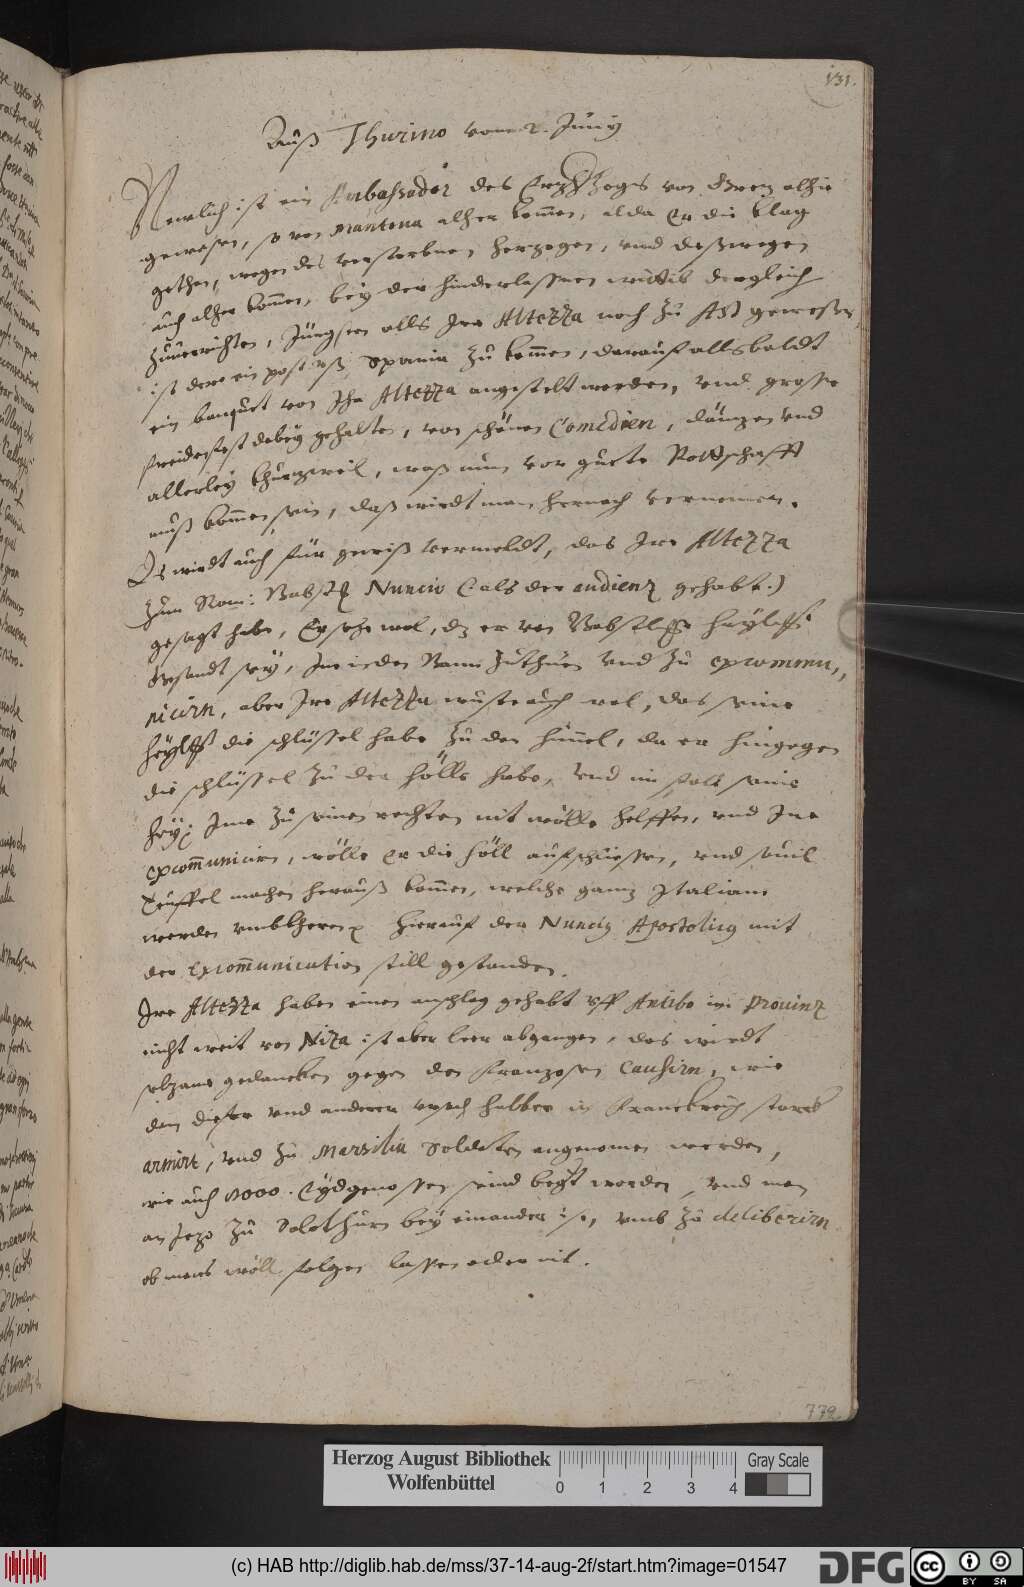 131.
Auß Thurino vom 2. Junij
Newlich ist ein Ambassador des Ertzhertzogs von Gretz alhie
gewesen, so von Mantoua alher kommen, alda Er die klag
gethon, wegen des verstorbnen Herzogen, vnd deßwegen
auch alher kommen, bey der hinderlassnen wittib dergleich
Zuuerrichten, Jüngsten alls Jre Altezza noch zu Ast gewesen,
ist dero ein post vß Spania zu kommen, darauf allsbaldt
ein banquet von Jhr Altezza angestelt worden, vnd grosse
freidenfest dabey gehalten, von schönen Comedien, dänzen vnd
allerley khurzweil, waß nun vor guete Pottschafft
muß kommen sein, daß wirdt man hernach vernemen.
Es wirdt auch für gewiß vermeldt, das Jre Altezza
Zum Rom: Babstl. Nuncio (als der audienz gehabt.)
gesagt habe, Er sehe wol, dz er von Babstlicher heyligkeit
Gesandt sey, Jne in den Bann zuthuen vnd zu excommu,,
nicirn, aber Jre Altezza wuste auch wol, das seine
heyligkeit die schlüssel habe zu den himmel, da er hingegen
die schlüssel zu der höllen habe, vnd im fall seine
hey: Jme zu seinen rechten nit wölle helffen, vnd Jne
excommunicirn, wölle Er die höll aufschliessen, vnd souil
Teuffel machen herauß kommen, welche ganz Italiam
werden vmbkheren. Hierauf der Nuncius Apostolicus mit
der Excommunication still gestanden.
Jre Altezza haben einen anschlag gehabt vff Antibo in Prouinz
nicht weit von Niza ist aber leer abgangen, das wirdt
selzame gedancken gegen den Franzosen causirn, wie
dan diser vnd anderer vrsach halber in Franckreich starck
armirt, vnd zu Marsilia Soldaten angenomen werden,
wie auch 8000. Eydgenossen seind begert worden, vnd man
an Jezo zu Solothurn bey einander ist, vmb zu deliberirn
ob mans wöll folgen lassen oder nit.
772
Herzog August Bibliothek
Wolfenbüttel
0 1 2 3 4
Gray Scale
(c) HAB http://diglib.hab.de/mss/37-14-aug-2f/start.htm?image=01547
DFG
cc BY SA